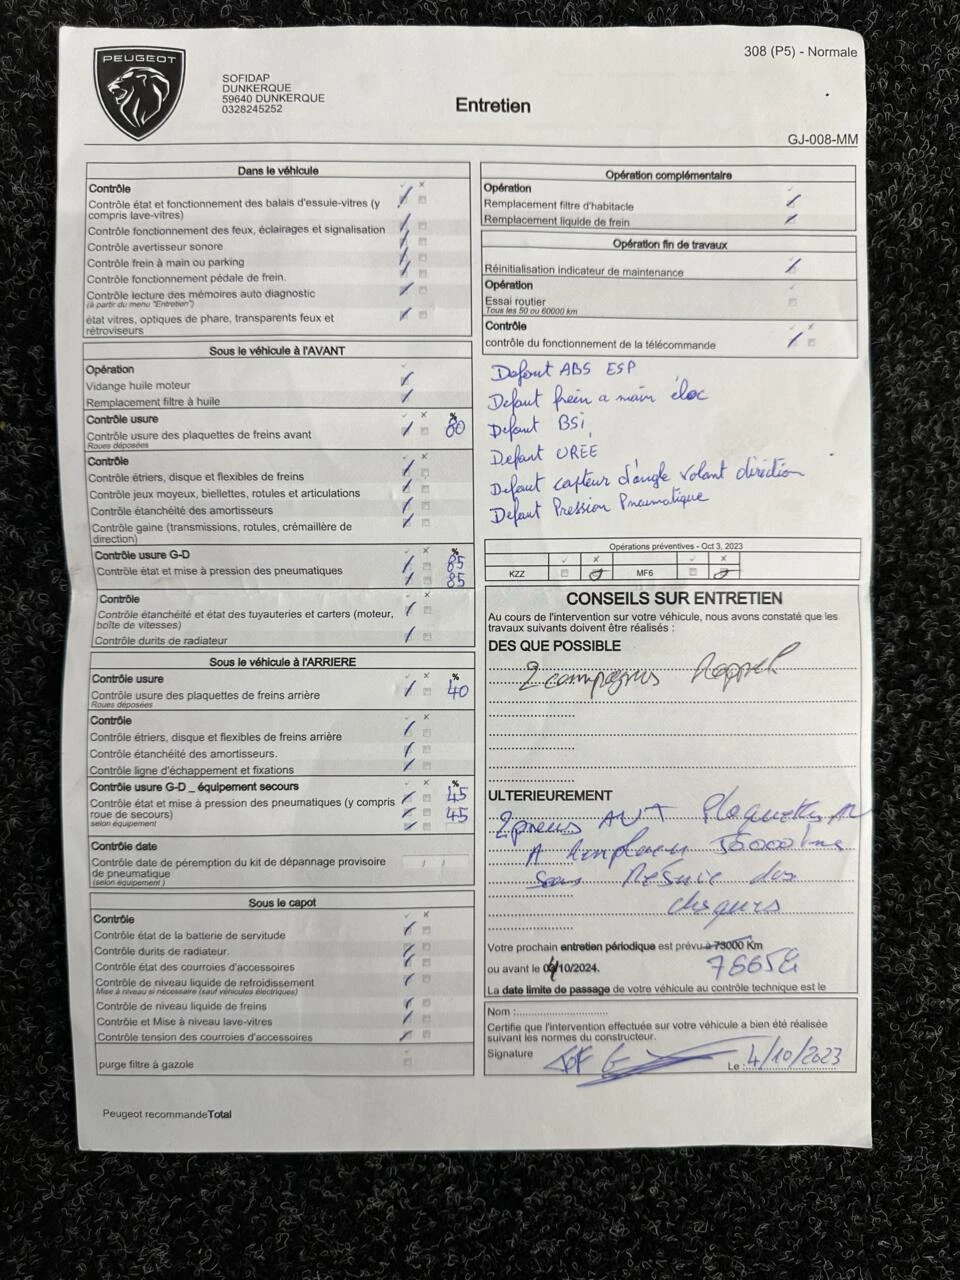 PEUGEOT
SOFIDAP
DUNKERQUE
59640 DUNKERQUE
0328245252
Entretien
308 (P5) - Normale
GJ-008-MM
Dans le véhicule
Contrôle
Contrôle état et fonctionnement des balais d'essuie-vitres (y
compris lave-vitres)
Contrôle fonctionnement des feux, éclairages et signalisation
Contrôle avertisseur sonore
Contrôle frein à main ou parking
Contrôle fonctionnement pédale de frein.
Contrôle lecture des mémoires auto diagnostic
(à partir du menu "Entretien")
état vitres, optiques de phare, transparents feux et
rétroviseurs
Sous le véhicule à l'AVANT
Opération
Vidange huile moteur
Remplacement filtre à huile
Contrôle usure %
Contrôle usure des plaquettes de freins avant 80
Roues déposées
Contrôle
Contrôle étriers, disque et flexibles de freins
Contrôle jeux moyeux, biellettes, rotules et articulations
Contrôle étanchéité des amortisseurs
Contrôle gaine (transmissions, rotules, crémaillère de
direction)
Contrôle usure G-D %
Contrôle état et mise à pression des pneumatiques 85
85
Contrôle
Contrôle étanchéité et état des tuyauteries et carters (moteur,
boîte de vitesses)
Contrôle durits de radiateur
Sous le véhicule à l'ARRIERE
Contrôle usure %
Contrôle usure des plaquettes de freins arrière 40
Roues déposées
Contrôle
Contrôle étriers, disque et flexibles de freins arrière
Contrôle étanchéité des amortisseurs.
Contrôle ligne d'échappement et fixations
Contrôle usure G-D _ équipement secours %
Contrôle état et mise à pression des pneumatiques (y compris 45
roue de secours) 45
selon équipement
Contrôle date
Contrôle date de péremption du kit de dépannage provisoire
de pneumatique / /
(selon équipement )
Sous le capot
Contrôle
Contrôle état de la batterie de servitude
Contrôle durits de radiateur.
Contrôle état des courroies d'accessoires
Contrôle de niveau liquide de refroidissement
Mise à niveau si nécessaire (sauf véhicules électriques)
Contrôle de niveau liquide de freins
Contrôle et Mise à niveau lave-vitres
Contrôle tension des courroies d'accessoires
purge filtre à gazole
Peugeot recommandeTotal
Opération complémentaire
Opération
Remplacement filtre d'habitacle
Remplacement liquide de frein
Opération fin de travaux
Réinitialisation indicateur de maintenance
Opération
Essai routier
Tous les 50 ou 60000 km
Contrôle
contrôle du fonctionnement de la télécommande
Defaut ABS ESP
Defaut frein a main éloc
Defaut BSi,
Defaut UREE
Defaut capteur d'angle volant direction
Defaut Pression Pneumatique
Opérations préventives - Oct 3, 2023
KZZ MF6
CONSEILS SUR ENTRETIEN
Au cours de l'intervention sur votre véhicule, nous avons constaté que les
travaux suivants doivent être réalisés :
DES QUE POSSIBLE
2 Rappel
ULTERIEUREMENT
2 pneus AVT
A
des
Votre prochain entretien périodique est prévu à 73000 Km
ou avant le /10/2024.
La date limite de passage de votre véhicule au contrôle technique est le
Nom :
Certifie que l'intervention effectuée sur votre véhicule a bien été réalisée
suivant les normes du constructeur.
Signature
Le : 4/10/2023